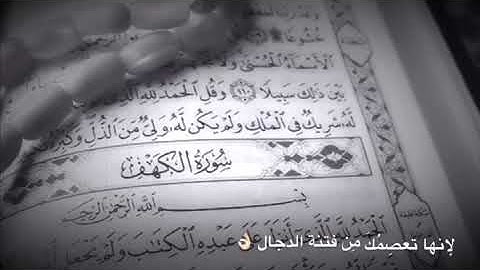 خُشُوعًا
ٱلْأَسْمَآءُ ٱلْحُسْنَىٰ وَلَا
بَيْنَ ذَٰلِكَ سَبِيلًا ١١٠ وَقُلِ ٱلْحَمْدُ لِلَّهِ ٱلَّذِى
لَّهُۥ شَرِيكٌ فِى ٱلْمُلْكِ وَلَمْ يَكُن لَّهُۥ وَلِىٌّ مِّنَ ٱلذُّلِّ وَكَبِّرْهُ
سُورَةُ الكَهْفِ
بِسْمِ ٱللَّهِ ٱلرَّحْمَٰنِ ٱلرَّحِيمِ
ٱلْحَمْدُ لِلَّهِ ٱلَّذِىٓ أَنزَلَ عَلَىٰ عَبْدِهِ ٱلْكِتَٰبَ وَلَمْ يَجْعَل
لإنها تَعصِمُك من فتنة الدجال